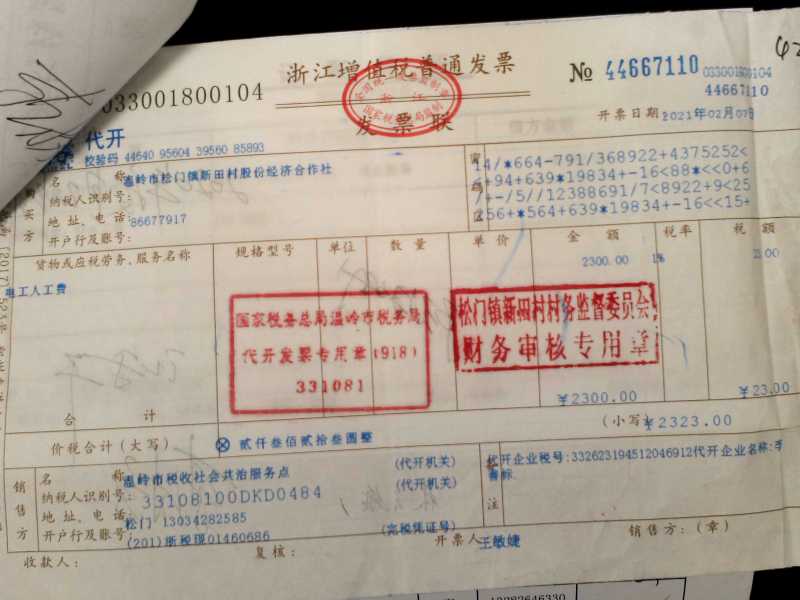 浙江增值税普通发票
033001800104
№ 44667110
033001800104
44667110
发票联
开票日期:2021年02月07日
代开
校验码 44640 95604 39560 85893
购买方
名称:温岭市松门镇新田村股份经济合作社
纳税人识别号:
地址、电话:86677917
开户行及账号:
密码区
14/*664-791/368922+4375252<
+94+639*19834+-16<88*<<0+6
/+-/5//12388691/7<8922+9<25
256+*564+639*19834+-16<<15+
货物或应税劳务、服务名称 规格型号 单位 数量 单价 金额 税率 税额
电工人工费 2300.00 1% 23.00
国家税务总局温岭市税务局
代开发票专用章(918)
331081
松门镇新田村村务监督委员会
财务审核专用章
合计 ¥2300.00 ¥23.00
价税合计(大写) ⊗ 贰仟叁佰贰拾叁圆整 (小写)¥2323.00
销售方
名称:温岭市税收社会共治服务点 (代开机关)
纳税人识别号:33108100DKD0484 (代开机关)
地址、电话:松门 13034282585
开户行及账号:(201)浙税现01460686 (完税凭证号)
备注
代开企业税号:332623194512046912代开企业名称:李
收款人:
复核:
开票人:王敏婕
销售方:(章)